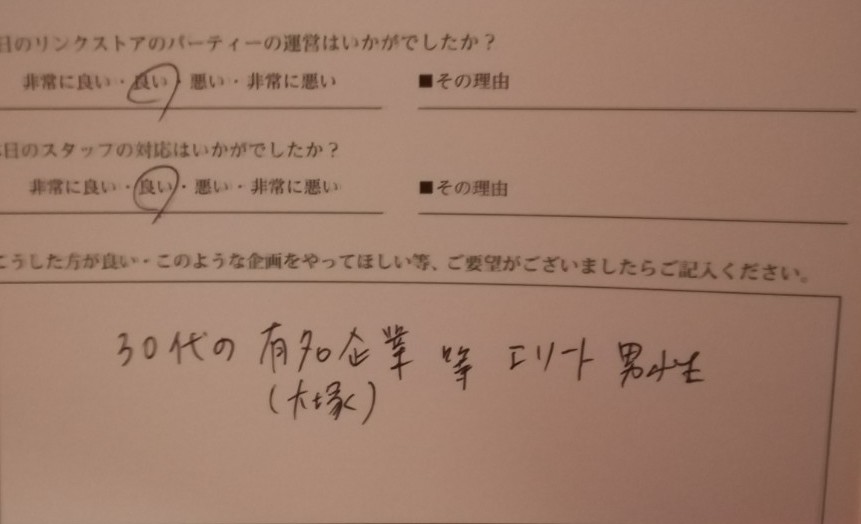 日のリンクストアのパーティーの運営はいかがでしたか？
非常に良い・良い・悪い・非常に悪い ■その理由
日のスタッフの対応はいかがでしたか？
非常に良い・良い・悪い・非常に悪い ■その理由
こうした方が良い・このような企画をやってほしい等、ご要望がございましたらご記入ください。
30代の有名企業 等 エリート 男性
(大塚)